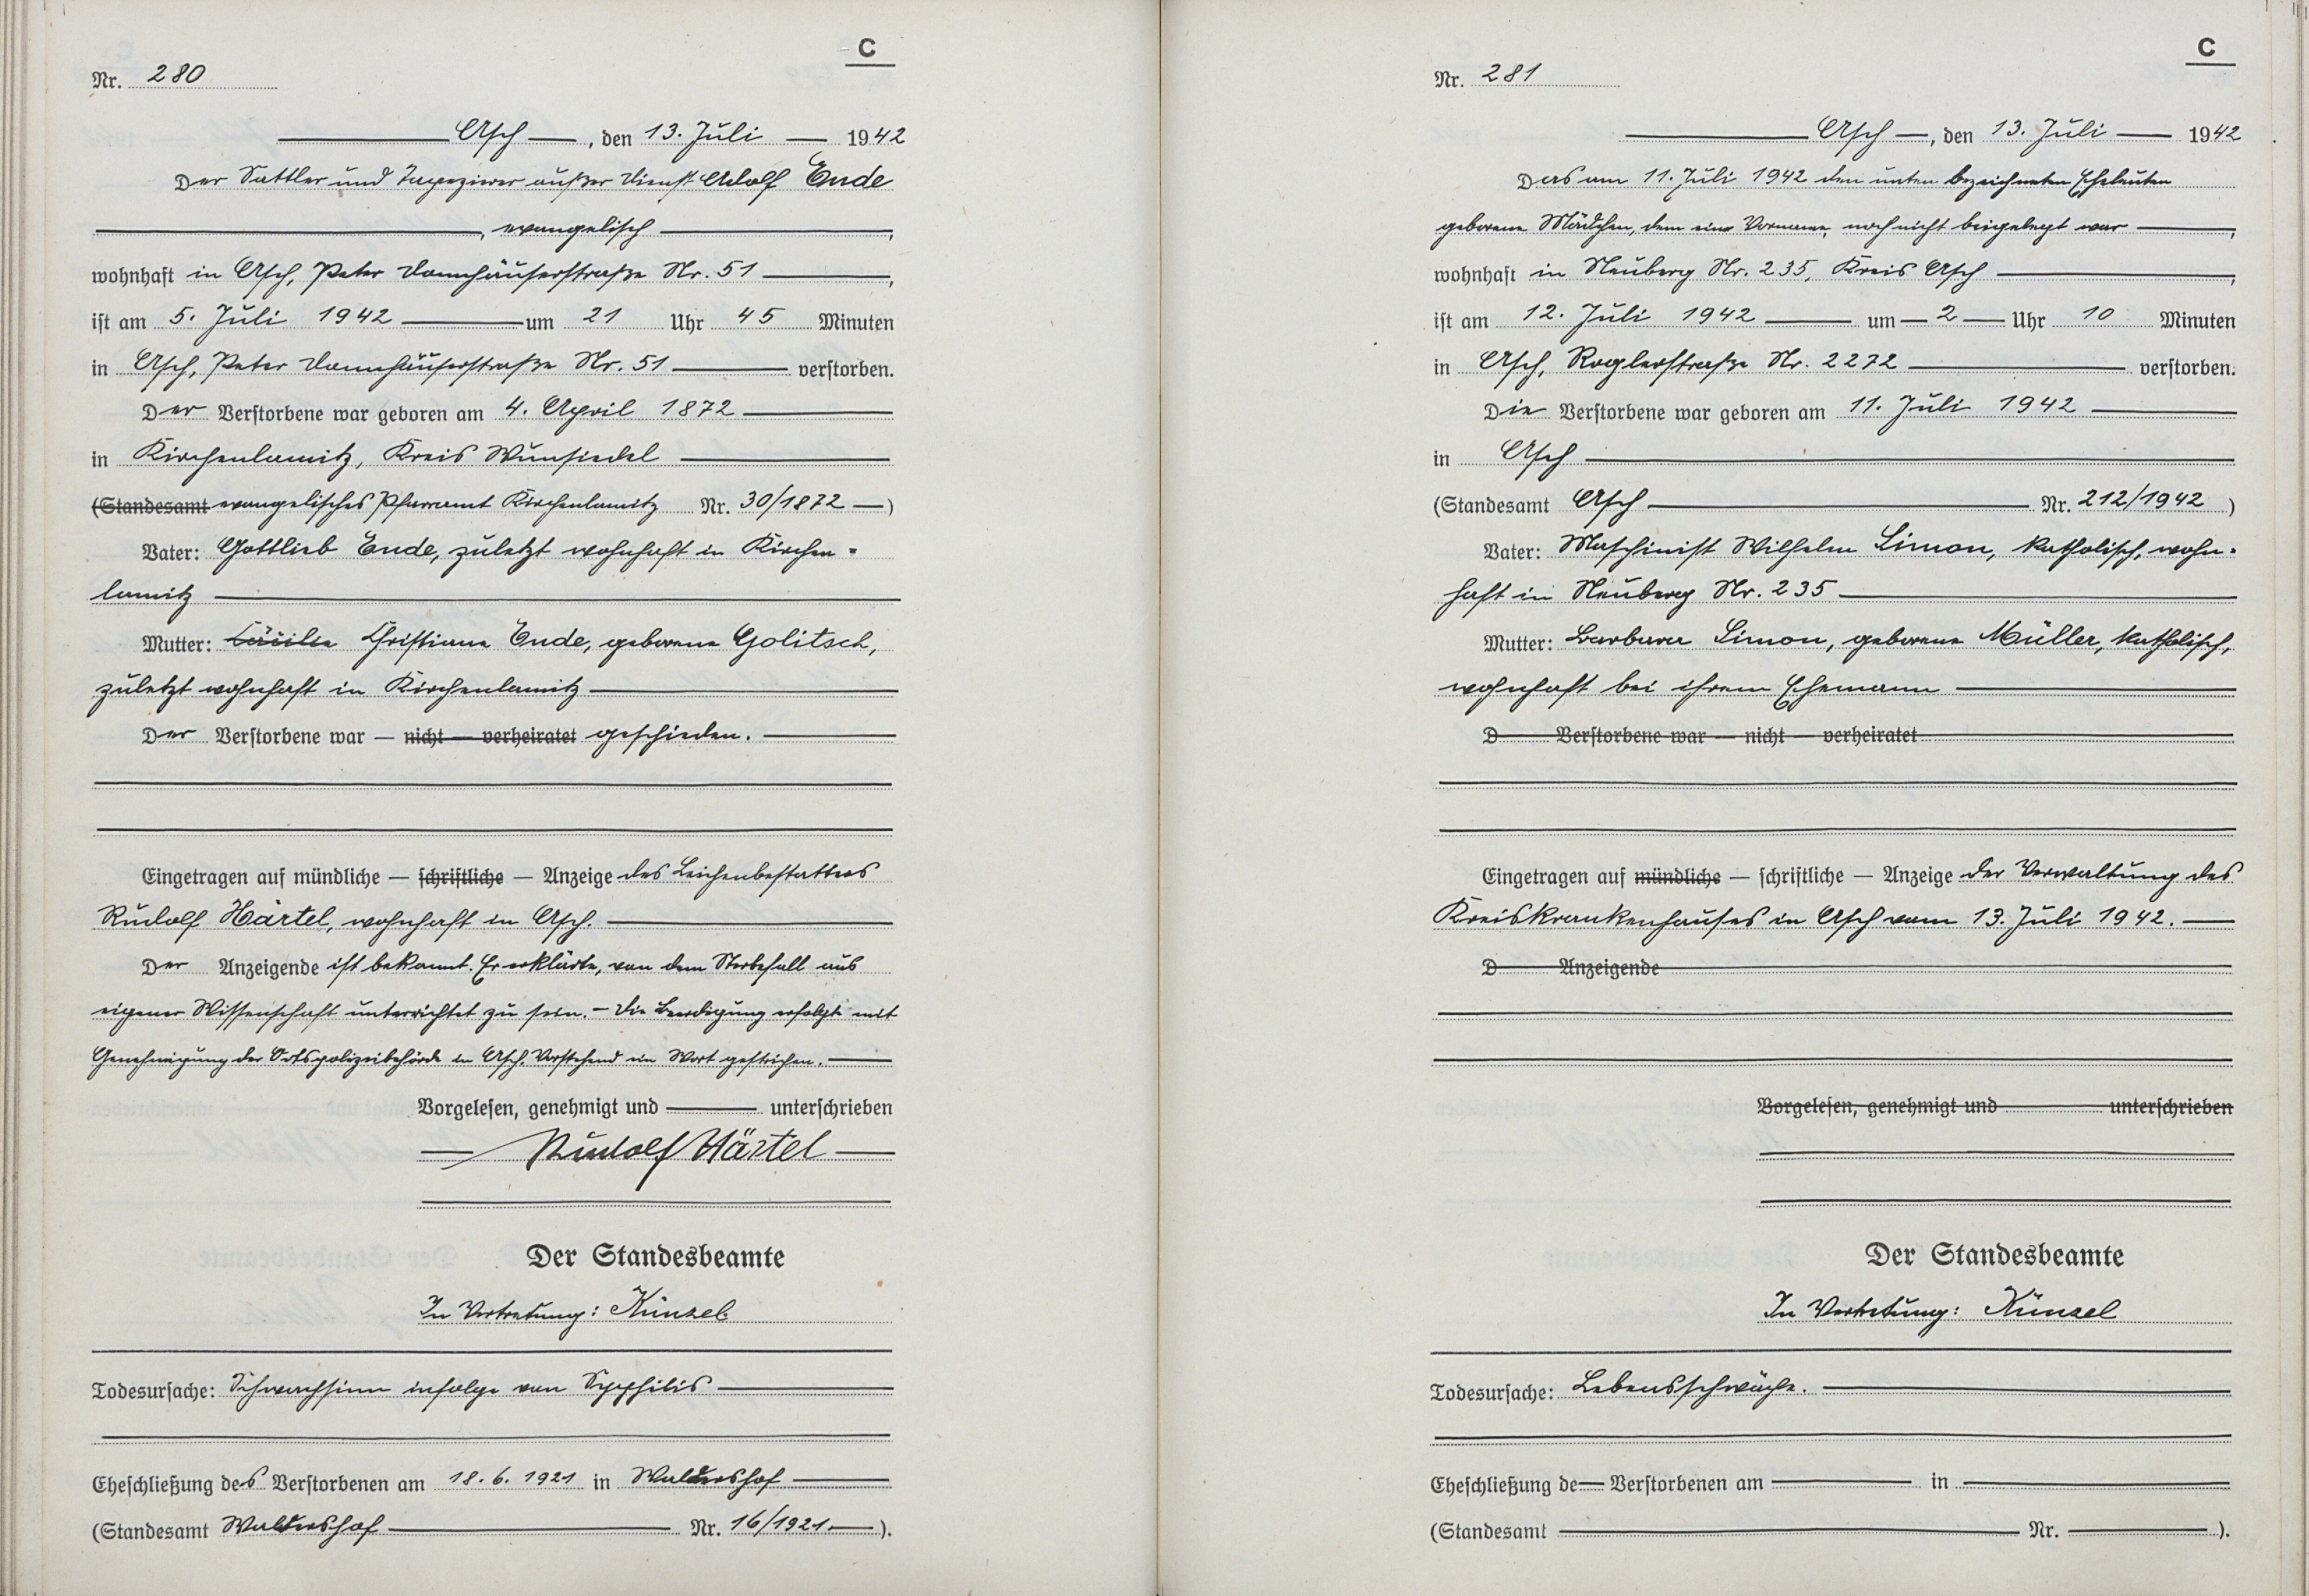 C
Nr. 280
Asch, den 13. Juli 1942
Der Sattler und Tapezierer außer Dienst Adolf Ende
, evangelisch ,
wohnhaft in Asch, Peter Donnhäuserstraße Nr. 51 ,
ist am 5. Juli 1942 um 21 Uhr 45 Minuten
in Asch, Peter Donnhäuserstraße Nr. 51 verstorben.
Der Verstorbene war geboren am 4. April 1872
in Kirchenlamitz, Kreis Wunsiedel
(Standesamt evangelisches Pfarramt Kirchenlamitz Nr. 30/1872 —)
Vater: Gottlieb Ende, zuletzt wohnhaft in Kirchen=
lamitz
Mutter: Christiane Ende, geborene Golitsch,
zuletzt wohnhaft in Kirchenlamitz
Der Verstorbene war — nicht — verheiratet geschieden.
Eingetragen auf mündliche — schriftliche — Anzeige des Leichenbestatters
Rudolf Härtel, wohnhaft in Asch.
Der Anzeigende ist bekannt. Er erklärte, von dem Sterbefall aus
eigener Wissenschaft unterrichtet zu sein. — Die Beerdigung erfolgte mit
Genehmigung der Ortspolizeibehörde in Asch. Vorstehend ein Wort gestrichen.
Vorgelesen, genehmigt und — unterschrieben
Rudolf Härtel
Der Standesbeamte
In Vertretung: Künzel
Todesursache: Schwachsinn infolge von Syphilis
Eheschließung des Verstorbenen am 18. 6. 1921 in Waldershof
(Standesamt Waldershof Nr. 16/1921 —).
C
Nr. 281
Asch, den 13. Juli 1942
Das am 11. Juli 1942 den unten bezeichneten Eheleuten
geborene Mädchen, dem ein Vorname noch nicht beigelegt war ,
wohnhaft in Neuberg Nr. 235, Kreis Asch ,
ist am 12. Juli 1942 um — 2 — Uhr 10 Minuten
in Asch, Roglerstraße Nr. 2272 verstorben.
Die Verstorbene war geboren am 11. Juli 1942
in Asch
(Standesamt Asch Nr. 212/1942)
Vater: Maschinist Wilhelm Simon, katholisch, wohn=
haft in Neuberg Nr. 235
Mutter: Barbara Simon, geborene Müller, katholisch,
wohnhaft bei ihrem Ehemann
D Verstorbene war — nicht — verheiratet
Eingetragen auf mündliche — schriftliche — Anzeige der Verwaltung des
Kreiskrankenhauses in Asch vom 13. Juli 1942.
D Anzeigende
Vorgelesen, genehmigt und unterschrieben
Der Standesbeamte
In Vertretung: Künzel
Todesursache: Lebensschwäche.
Eheschließung de— Verstorbenen am — in —
(Standesamt — Nr. —).